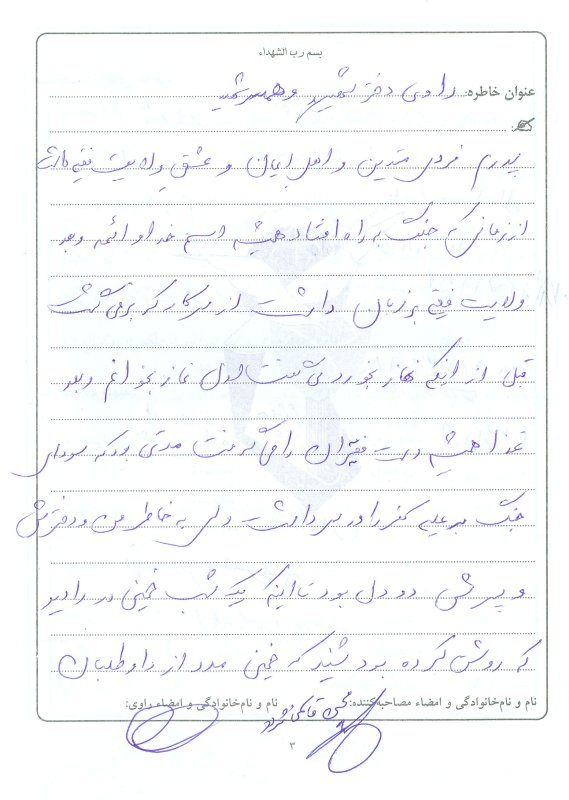 بسم رب الشهداء
عنوان خاطره: راوی دختر شهید و همسر شهید
پدرم فردی متدین و اهل ایمان و عشق ولایت فقیه داشت
از زمانی که جنگ به راه افتاد همیشه اسم خدا و ائمه و بعد
ولایت فقیه بر زبان داشت از سر کار که برمی گشت
قبل از اینکه نهار بخورد می گفت اول نماز بخوانم و بعد
غذا همیشه دست فقیران را می گرفت مدتی بود که سودای
جنگ بر علیه کفر را در سر داشت ولی به خاطر من و دخترش
و پسرش دو دل بود تا اینکه یک شب خمینی در رادیو
که روشن کرده بود شنید که خمینی مدد از داوطلبان
نام و نام خانوادگی و امضاء مصاحبه کننده: نام و نام خانوادگی و امضاء راوی:
۳